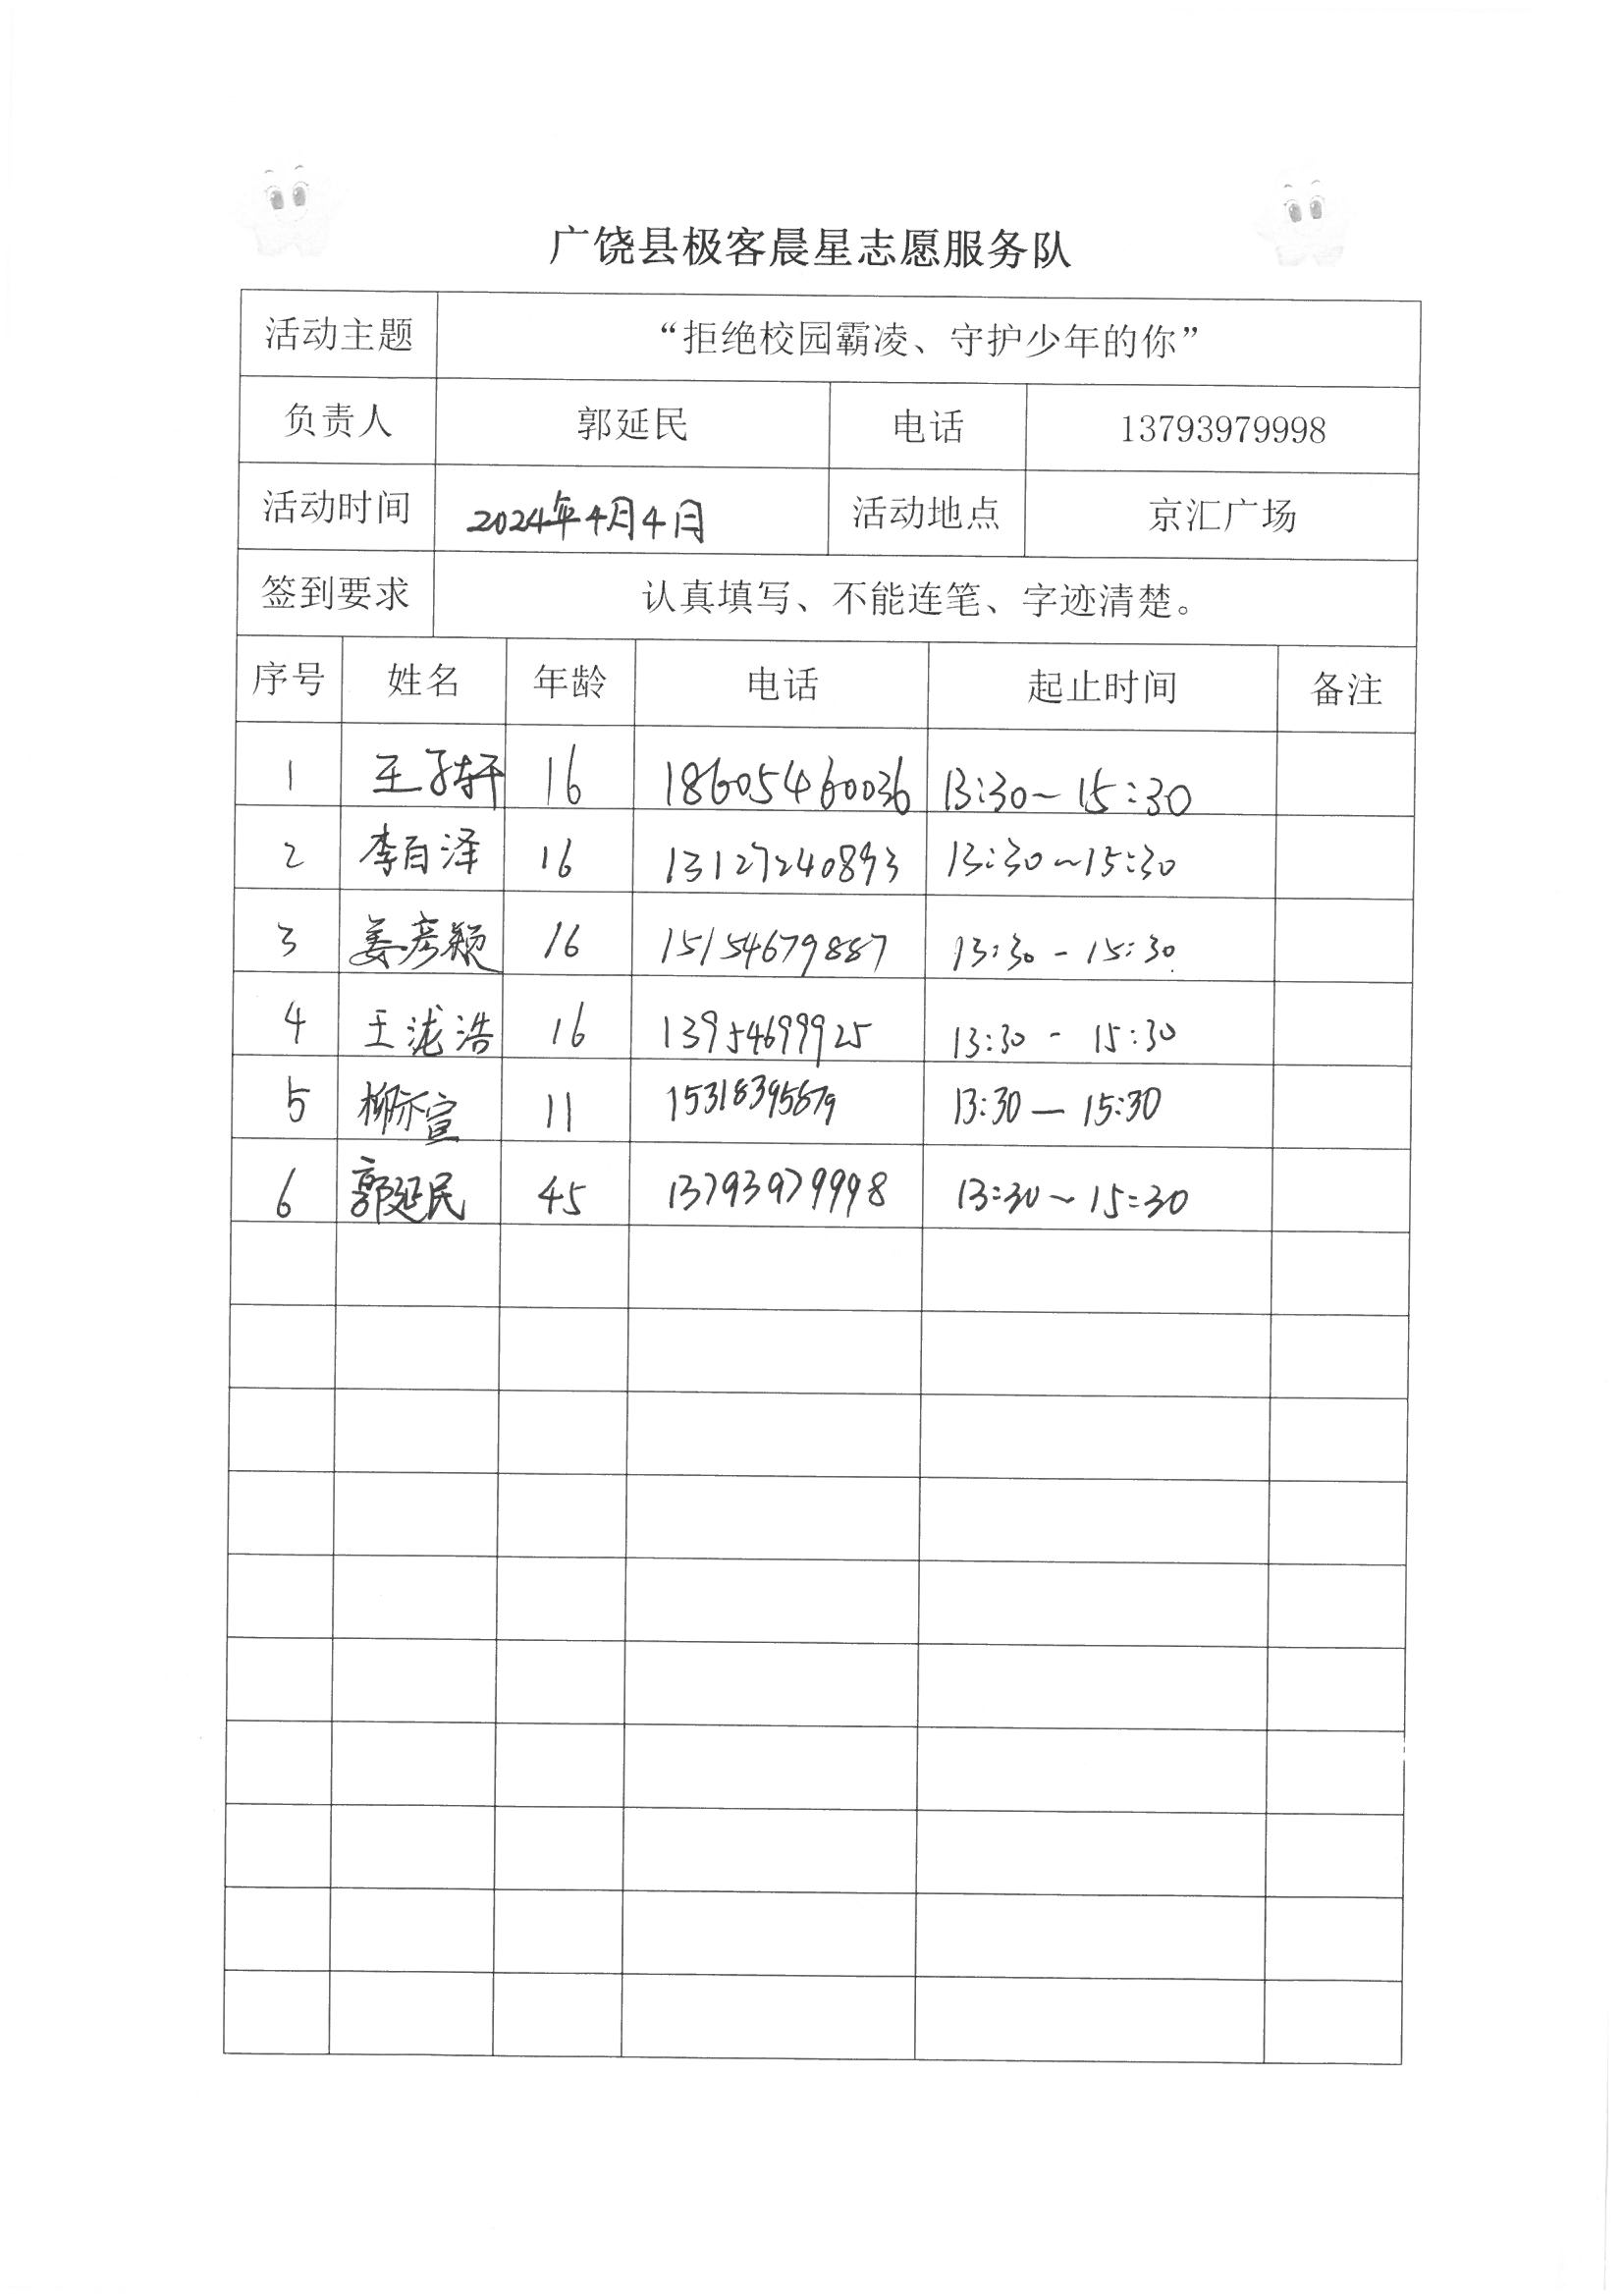 广饶县极客晨星志愿服务队
活动主题 “拒绝校园霸凌、守护少年的你”
负责人 郭延民 电话 13793979998
活动时间 2024年4月4日 活动地点 京汇广场
签到要求 认真填写、不能连笔、字迹清楚。
序号 姓名 年龄 电话 起止时间 备注
1 王子轩 16 18605460036 13:30~15:30
2 李百泽 16 13127240893 13:30~15:30
3 姜彦颖 16 15154679887 13:30-15:30
4 王泷浩 16 13954699925 13:30-15:30
5 柳亦宣 11 15318395679 13:30—15:30
6 郭延民 45 13793979998 13:30~15:30